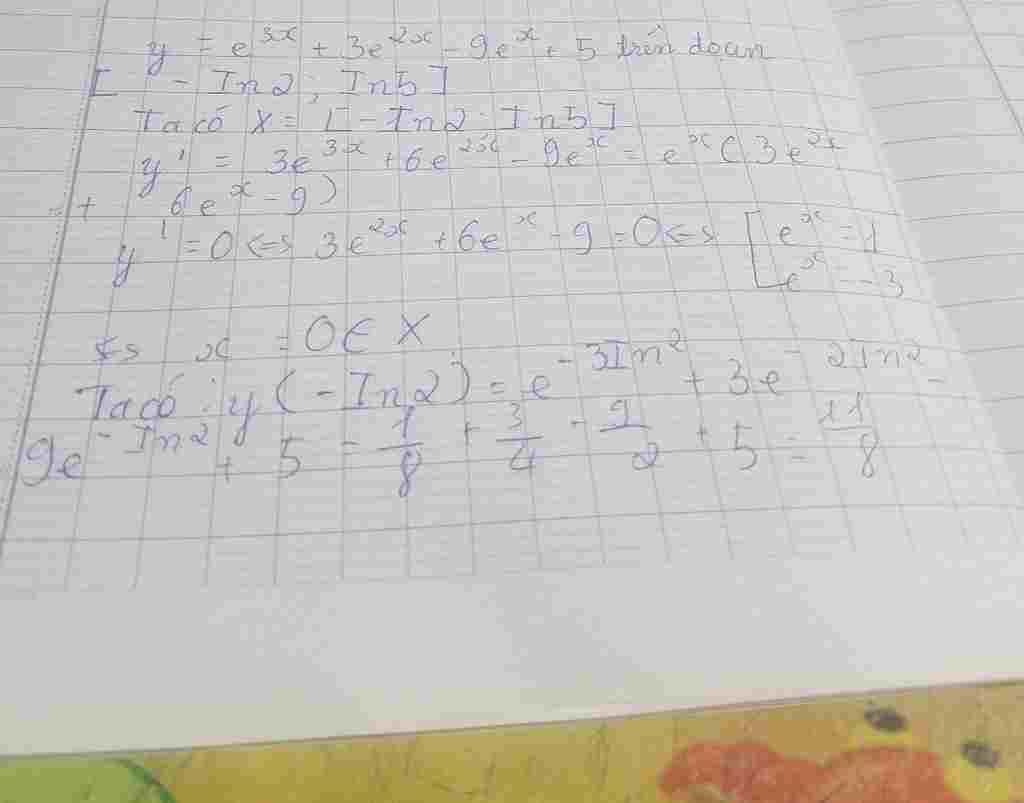 y = e^3x + 3e^2x - 9e^x + 5 trên đoạn
[ - In2 ; In5 ]
Ta có X = [ - In2 ; In5 ]
y' = 3e^3x + 6e^2x - 9e^x = e^x ( 3e^2x
+ 6e^x - 9 )
y' = 0 <=> 3e^2x + 6e^x - 9 = 0 <=> [ e^x = 1
e^x = -3
<=> x = 0 ∈ X
Ta có : y ( - In2 ) = e^-3In2 + 3e^-2In2 -
9e^-In2 + 5 = 1/8 + 3/4 - 9/2 + 5 = 11/8